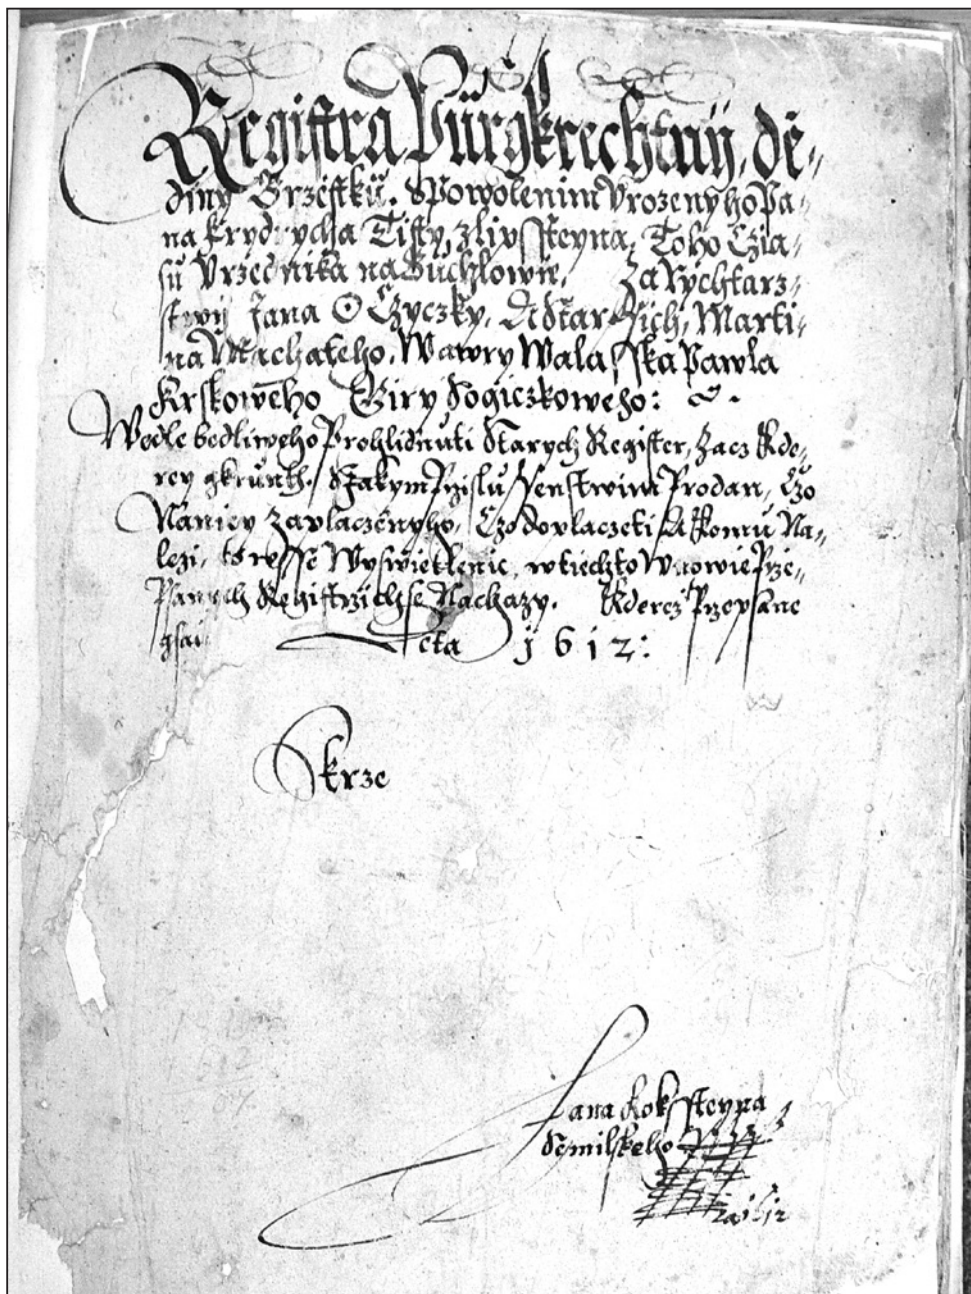 Registra Purgkrechtny, dě-
diny Brzestku. S Powolenim Vrozenyho Pa-
na Frydrycha Tisty, z lipssteyna, Toho Czia-
su Vrzednika na Buchlowie, Za Rychtarz-
stwy Jana O Czyczky, A Starssich, Marti-
na Machateho, Wawry Walasska Pawla
Krskoweho Giry Sogiczkoweho:
Wedle bedliweho Prohlidnuti Starych Register, Zacz Kde-
rey gkrunth. S Takym Przislussenstwim Prodan, Czo
Naniey Zaplaczenyho, Czo doplaczeti A Komu Na-
lezi, to wsse Wyswietlenie, w tiechto Wnowie Prze-
Psanych Registrzich se Nachazy. Kderez Przepsane
gsau Leta 1612:
Skrze
Jana Roksteyna
Semilskeho